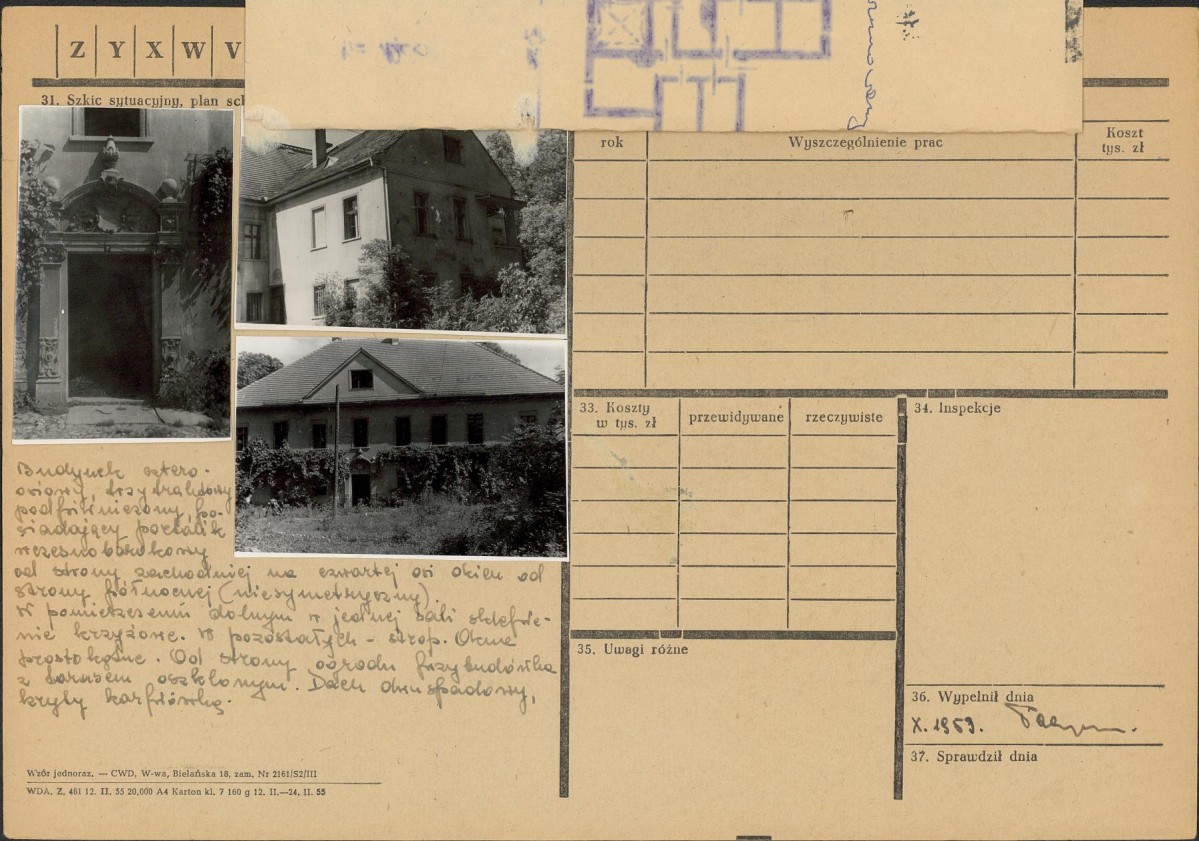 Z Y X W V
31. Szkic sytuacyjny, plan sch
rok
Wyszczególnienie prac
Koszt
tys. zł
33. Koszty
w tys. zł
przewidywane
rzeczywiste
34. Inspekcje
35. Uwagi różne
36. Wypełnił dnia
X. 1959.
37. Sprawdził dnia
Budynek cztero-
osiowy, trzytraktowy
podpiwniczony, po-
siadający portalik
wczesnobarokowy
od strony zachodniej na czwartej osi okien od
strony północnej (niesymetryczny).
W pomieszczeniu dolnym w jednej sali sklepie-
nie krzyżowe. W pozostałych - strop. Okna
prostokątne. Od strony ogrodu przybudówka
z tarasem oszklonym. Dach dwuspadowy,
kryty karpiówką.
Wzór jednoraz. — CWD, W-wa, Bielańska 18, zam. Nr 2161/S2/III
WDA. Z. 461 12. II. 55 20,000 A4 Karton kl. 7 160 g 12. II.—24. II. 55